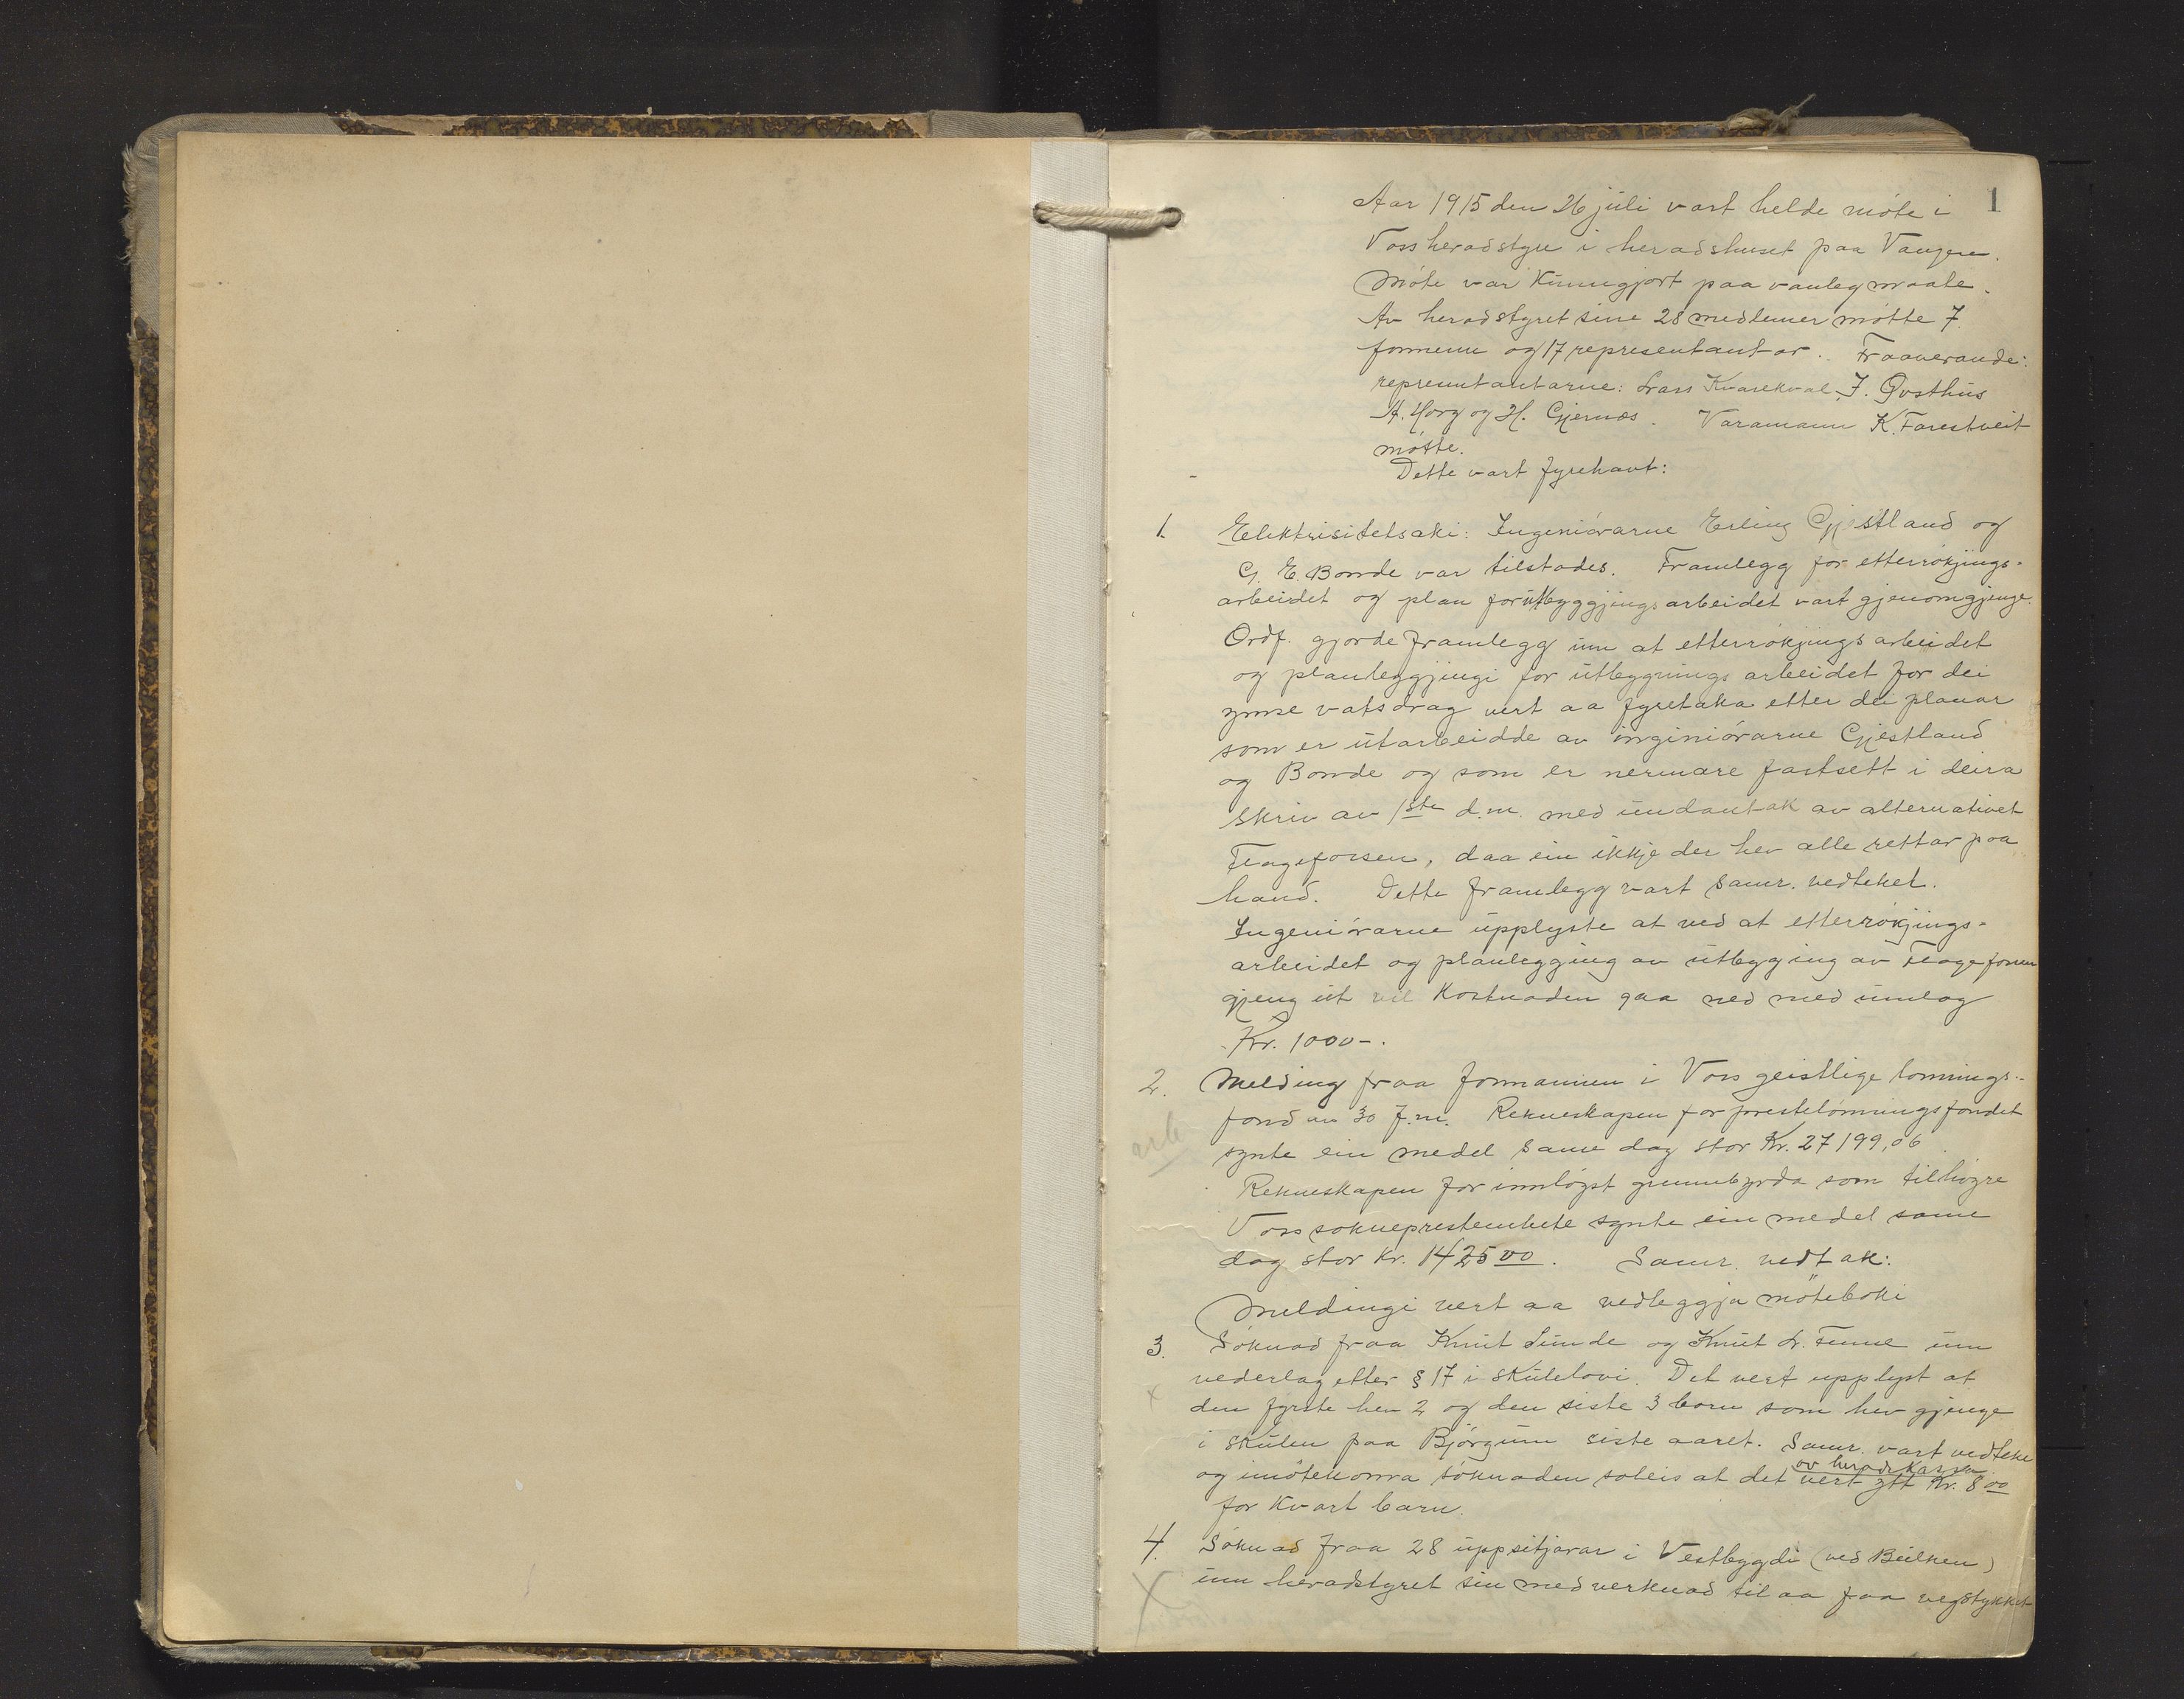 1
Aar 1915 den 26 juli vart helde möte i
Voss heradstyre i heradshuset paa Vangen.
Möte var kunngjort paa vanleg maate.
Av heradstyret sine 28 medlemer mötte 7
formenn og 17 representantar. Fraaverande:
representantarne: Lars Kvarekval, J. Øvsthus
A. Horg og H. Gjernes. Varamann K. Farestveit
mötte.
Dette vart fyrehavt:
1. Elektrisitetsaki: Ingeniörarne Erling Gjestland og
G. E. Bonde var tilstades. Framlegg for etterrökjings-
arbeidet og plan for utbyggjingsarbeidet vart gjenomgjenge.
Ordf. gjorde framlegg um at etterrökjingsarbeidet
og planleggjingi for utbygnings arbeidet for dei
ymse vatsdrag vert aa fyretaka etter dei planar
som er utarbeidde av inginiörarne Gjestland
og Bonde og som er nermare fastsett i deira
skriv av 1ste d.m. med undantak av alternativet
Flageforsen, daa ein ikkje der hev alle rettar paa
hand. Dette framlegg vart samr. vedteket.
Ingeniörarne upplyste at ved at etterrökjings-
arbeidet og planlegging av utbyging av Flagefossen
gjeng ut vil kostnaden gaa ned med umlag
Kr. 1000-.
2. Melding fraa formannen i Voss geistlige lønnings-
fond av 30 f.m. Rekneskapen for prestelönningsfondet
synte ein medel same dag stor Kr. 27199,06
Rekneskapen for innløyst grunnbyrda som tilhøyre
Voss sokneprestembete synte ein medel same
dag stor kr. 1425 00. Samr. vedtak:
Meldingi vert aa vedleggja möteboki
3. Söknad fraa Knut Sunde og Knut L. Finne um
vederlag etter § 17 i skulelovi. Det vert upplyst at
den fyrste hev 2 og den siste 3 born som hev gjenge
i skulen paa Björgum siste aaret. Samr. vart vedteke
og imötekoma söknaden soleis at det vert ytt Kr. 8 00
av heradskassa
for kvart barn.
4. Söknad fraa 28 uppsitjarar i Vestbygdi (ved Bulken)
um heradstyret sin medverknad til aa faa vegstykket